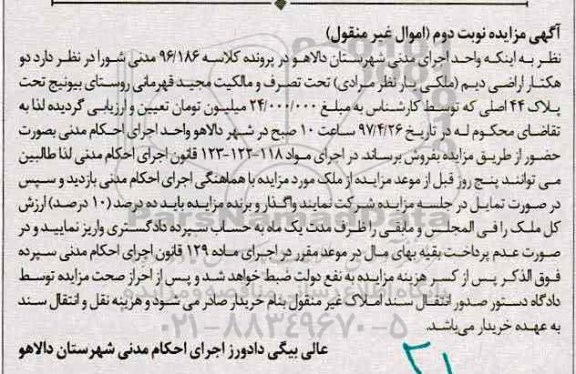 آگهی مزایده نوبت دوم (اموال غیر منقول)
نظر به اینکه واحد اجرای مدنی شهرستان دالاهو در پرونده کلاسه ۹۶/۱۸۶ مدنی شورا در نظر دارد دو
هکتار اراضی دیم (ملکی یار نظر مرادی) تحت تصرف و مالکیت مجید قهرمانی روستای بیونیج تحت
پلاک ۴۴ اصلی که توسط کارشناس به مبلغ ۲۴/۰۰۰/۰۰۰ میلیون تومان تعیین و ارزیابی گردیده لذا به
تقاضای محکوم له در تاریخ ۹۷/۴/۲۶ ساعت ۱۰ صبح در شهر دالاهو واحد اجرای احکام مدنی بصورت
حضور از طریق مزایده بفروش برساند. در اجرای مواد ۱۱۸-۱۲۲-۱۲۳ قانون اجرای احکام مدنی لذا طالبین
می توانند پنج روز قبل از موعد مزایده از ملک مورد مزایده با هماهنگی اجرای احکام مدنی بازدید و سپس
در صورت تمایل در جلسه مزایده شرکت نمایند واگذار و برنده مزایده باید ده درصد (۱۰ درصد) ارزش
کل ملک را فی المجلس و مابقی را ظرف مدت یک ماه به حساب سپرده دادگستری واریز نمایید و در
صورت عدم پرداخت بقیه بهای مال در موعد مقرر در اجرای ماده ۱۲۹ قانون اجرای احکام مدنی سپرده
فوق الذکر پس از کسر هزینه مزایده به نفع دولت ضبط خواهد شد و پس از احراز صحت مزایده توسط
دادگاه دستور صدور انتقال سند املاک غیر منقول بنام خریدار صادر می شود و هزینه نقل و انتقال سند
به عهده خریدار می‌باشد.
۰۲۱-۸۸۳۴۹۶۷۰-۵
عالی بیگی دادورز اجرای احکام مدنی شهرستان دالاهو